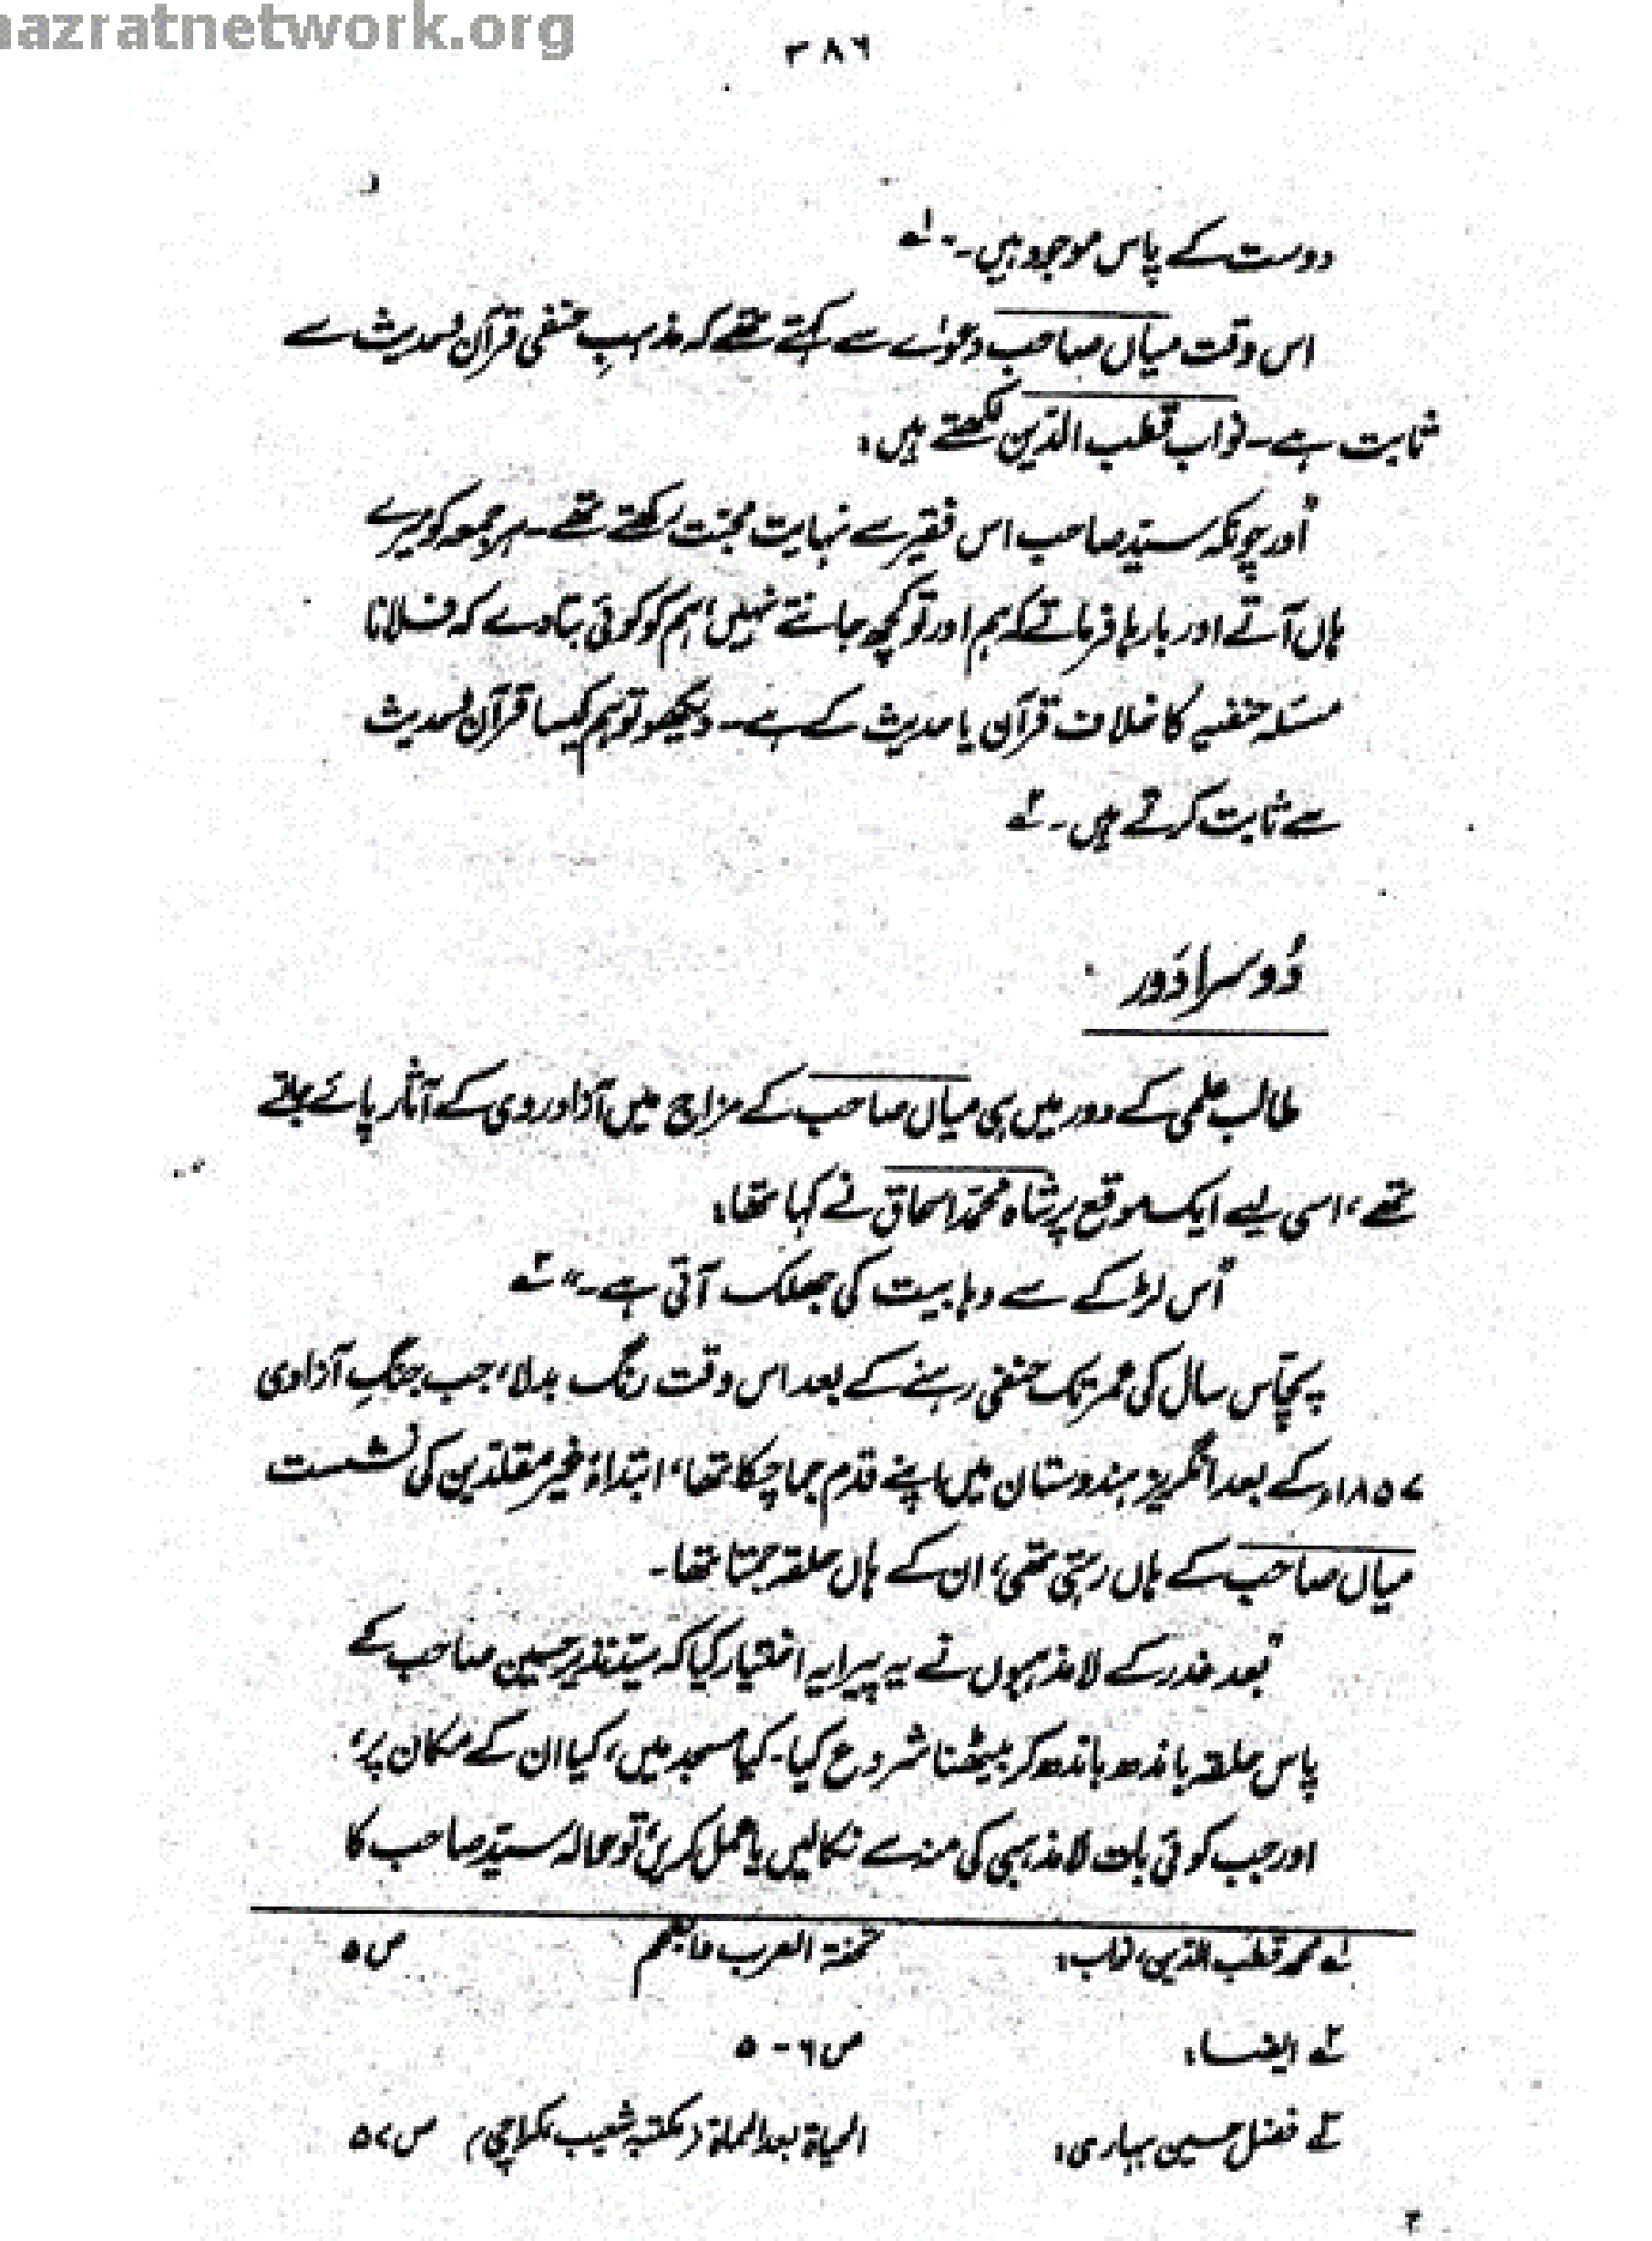 hazratnetwork.org
۳۸۶
دوست کے پاس موجود ہیں۔" ۱ے
اس وقت میاں صاحب دعوٰے سے کہتے تھے کہ مذہبِ حنفی قرآن و حدیث سے
ثابت ہے۔ نواب قطب الدّین لکھتے ہیں:
"اور چونکہ سیّد صاحب اس فقیر سے نہایت محبّت رکھتے تھے۔ ہر جمعہ کو میرے
ہاں آتے اور بارہا فرماتے کہ ہم اور تو کچھ جانتے نہیں، ہم کو کوئی بتا دے کہ فلانا
مسئلہ حنفیہ کا خلاف قرآن یا حدیث کے ہے۔ دیکھو تو ہم کیسا قرآن و حدیث
سے ثابت کرتے ہیں۔ ۲ے
دُوسرا دَور
طالب علمی کے دور میں ہی میاں صاحب کے مزاج میں آزاد روی کے آثار پائے جاتے
تھے، اسی لیے ایک موقع پر شاہ محمّد اسحاق نے کہا تھا:
"اس لڑکے سے وہابیت کی جھلک آتی ہے۔" ۳ے
پچاّس سال کی عمر تک حنفی رہنے کے بعد اس وقت رنگ بدلا، جب جنگِ آزادی
۱۸۵۷ء کے بعد انگریز ہندوستان میں اپنے قدم جما چکا تھا، ابتداءً غیر مقلدین کی نشست
میاں صاحب کے ہاں رہتی تھی، ان کے ہاں حلقہ جمتا تھا۔
"بعد غدر کے لامذہبوں نے یہ پیرایہ اختیار کیا کہ سیّد نذیر حسین صاحب کے
پاس حلقہ باندھ باندھ کر بیٹھنا شروع کیا۔ کیا مسجد میں، کیا ان کے مکان پر،
اور جب کوئی بات لامذہبی کی منہ سے نکالیں یا عمل کریں، تو حوالہ سیّد صاحب کا
۱ے محمد قطب الدّین، نواب: تحفۃ العرب والعجم ص ۵
۲ے ایضاً: ص ۶-۵
۳ے فضل حسین بہاری: الحیاۃ بعد المماۃ (مکتبہ شعیب، کراچی) ص ۵۷
۲